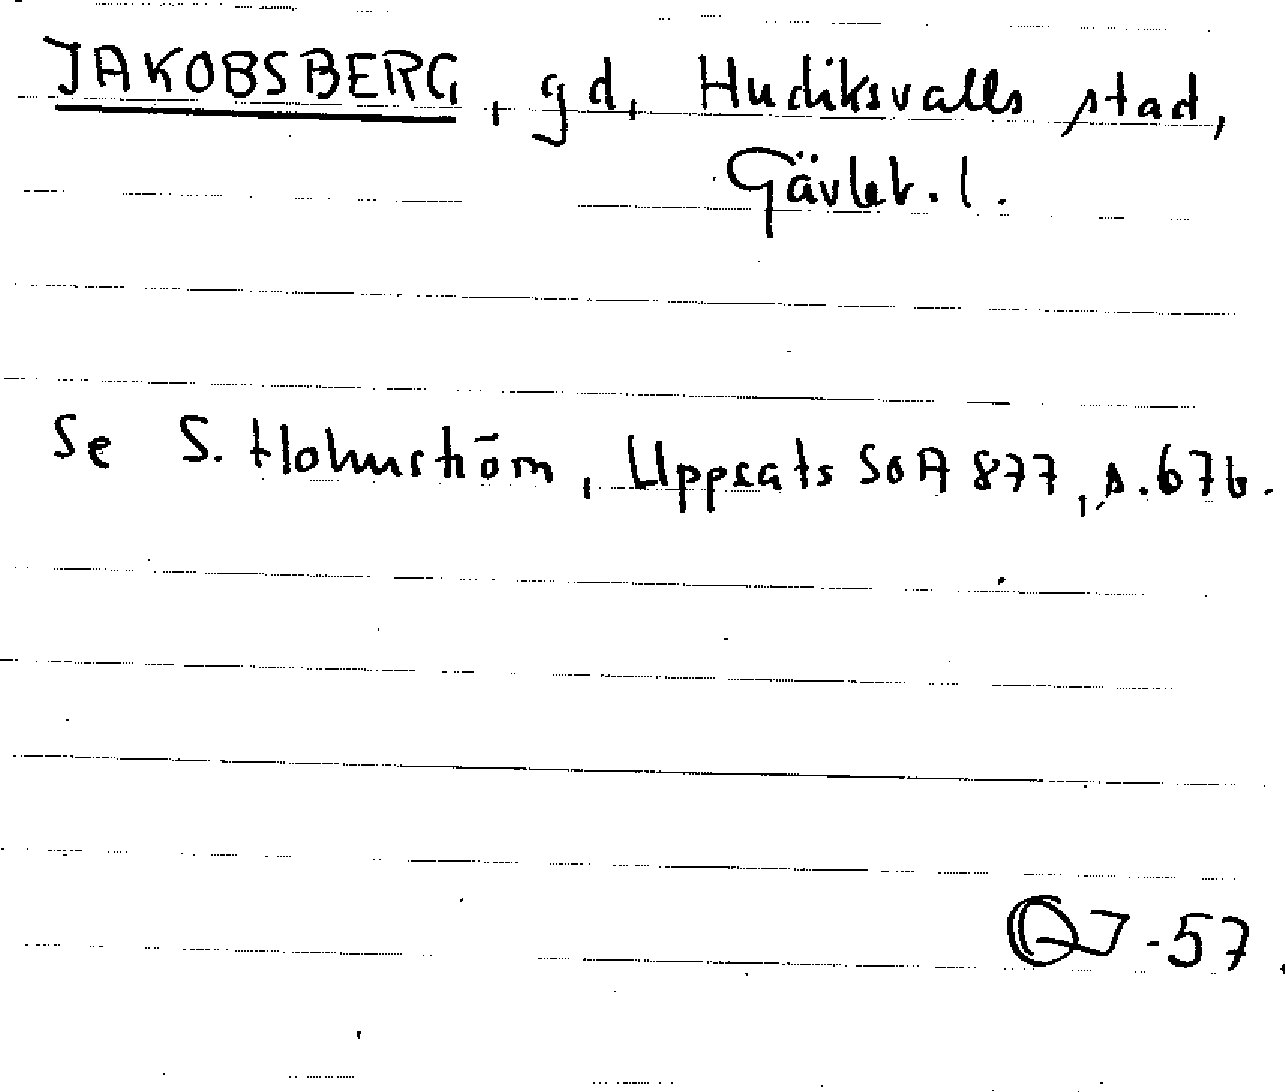 JAKOBSBERG, gd, Hudiksvalls stad,
Gävleb. l.
Se S. Holmström, Uppsats SOA 877, s. 67b.
QJ-57.